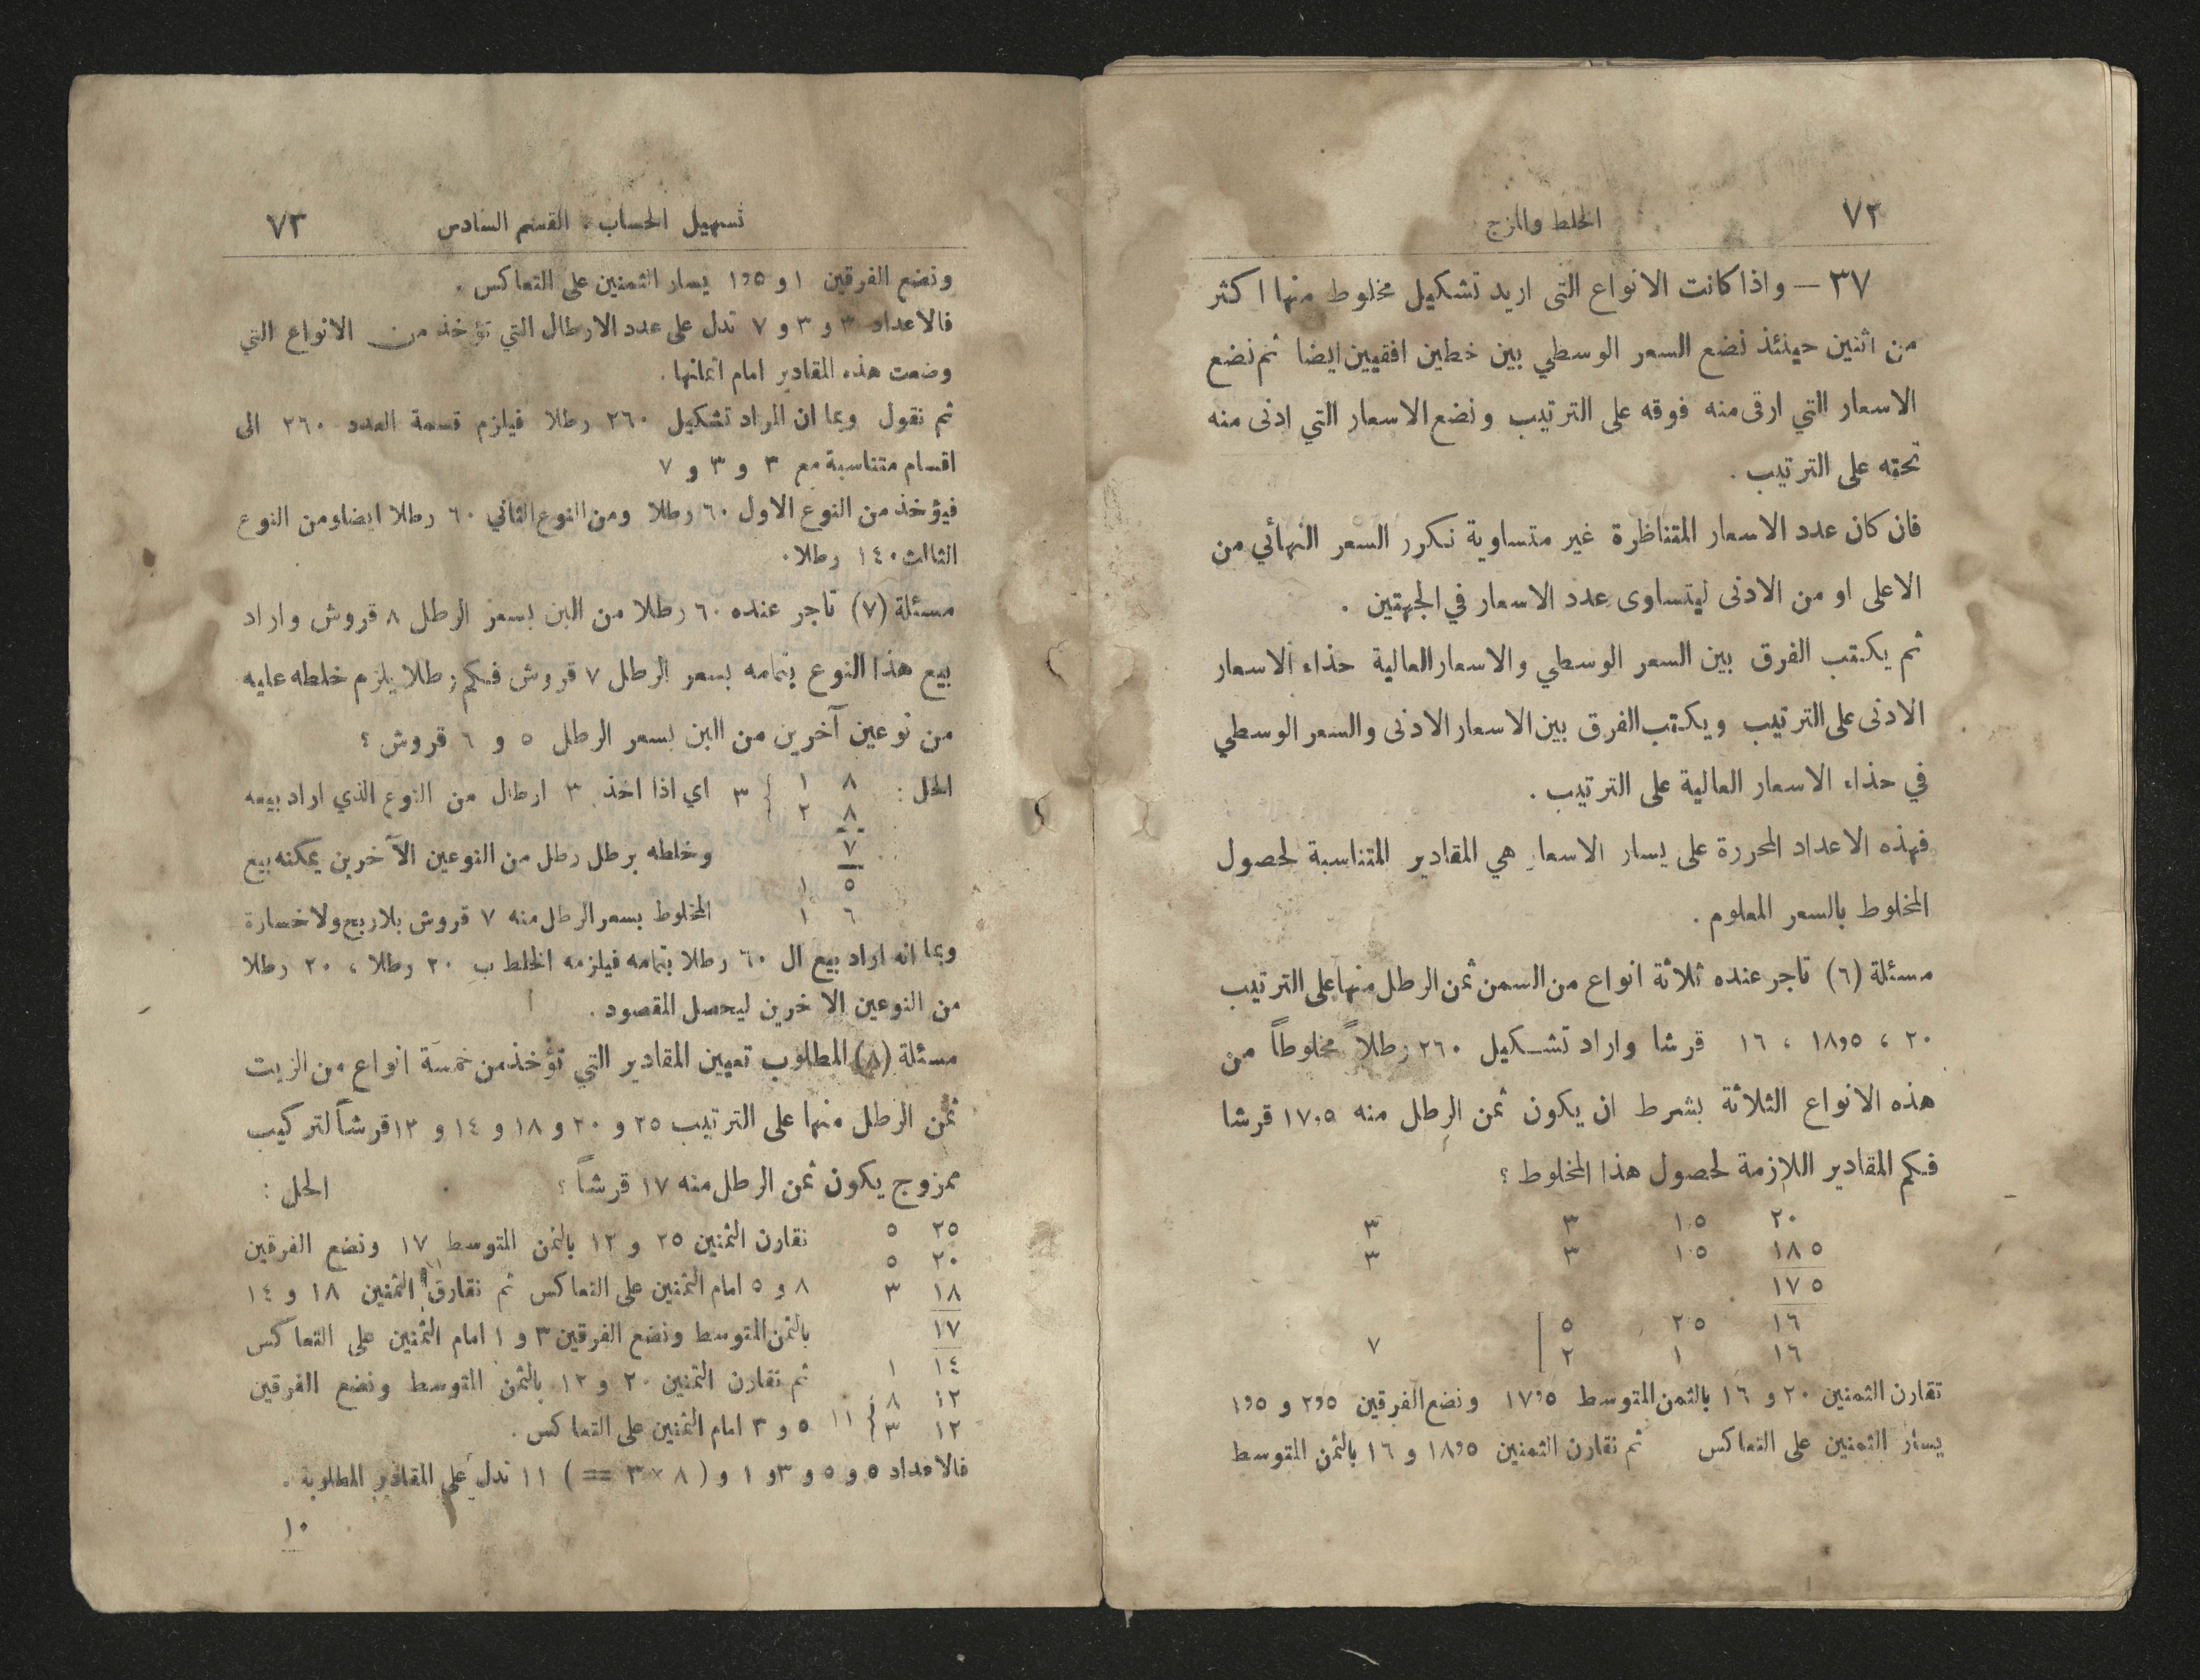 ٧٢
الخلط والمزج
٣٧ — واذا كانت الانواع التى اريد تشكيل مخلوط منها اكثر
من اثنين حينئذ نضع السعر الوسطي بين خطين افقيين ايضا ثم نضع
الاسعار التي ارقى منه فوقه على الترتيب ونضع الاسعار التي ادنى منه
تحته على الترتيب .
فان كان عدد الاسعار المتناظرة غير متساوية نكرر السعر النهائي من
الاعلى او من الادنى ليتساوى عدد الاسعار في الجهتين .
ثم يكتب الفرق بين السعر الوسطي والاسعار العالية حذاء الاسعار
الادنى على الترتيب ويكتب الفرق بين الاسعار الادنى والسعر الوسطي
في حذاء الاسعار العالية على الترتيب .
فهذه الاعداد المحررة على يسار الاسعار هي المقادير المتناسبة لحصول
المخلوط بالسعر المعلوم .
مسئلة (٦) تاجر عنده ثلاثة انواع من السمن ثمن الرطل منها على الترتيب
٢٠ ، ١٨٫٥ ، ١٦ قرشا واراد تشكيل ٢٦٠ رطلاً مخلوطاً من
هذه الانواع الثلاثة بشرط ان يكون ثمن الرطل منه ١٧٫٥ قرشا
فكم المقادير اللازمة لحصول هذا المخلوط ؟
٢٠ ١٥ ٣ ٣
١٨٥ ١٥ ٣ ٣
١٧٥
١٦ ٢٥ ٥
١٦ ١ ٢ ٧
تقارن الثمنين ٢٠ و ١٦ بالثمن المتوسط ١٧٫٥ ونضع الفرقين ٢٫٥ و ١٫٥
يسار الثمنين على التعاكس ثم نقارن الثمنين ١٨٫٥ و ١٦ بالثمن المتوسط
تسهيل الحساب . القسم السادس
٧٣
ونضع الفرقين ١ و ١٫٥ يسار الثمنين على التعاكس .
فالاعداد ٣ و ٣ و ٧ تدل على عدد الارطال التي تؤخذ من الانواع التي
وضعت هذه المقادير امام اثمانها .
ثم نقول وبما ان المراد تشكيل ٢٦٠ رطلا فيلزم قسمة العدد ٢٦٠ الى
اقسام متناسبة مع ٣ و ٣ و ٧
فيؤخذ من النوع الاول ٦٠ رطلا ومن النوع الثاني ٦٠ رطلا ايضا ومن النوع
الثالث ١٤٠ رطلا .
مسئلة (٧) تاجر عنده ٦٠ رطلا من البن بسعر الرطل ٨ قروش واراد
بيع هذا النوع بتمامه بسعر الرطل ٧ قروش فكم رطلا يلزم خلطه عليه
من نوعين آخرين من البن بسعر الرطل ٥ و ٦ قروش ؟
الحل : ٨ ١ } ٣ اي اذا اخذ ٣ ارطال من النوع الذي اراد بيعه
٨ ٢
٧ وخلطه برطل رطل من النوعين الآخرين يمكنه بيع
٥ ١
٦ ١ المخلوط بسعر الرطل منه ٧ قروش بلا ربح ولا خسارة
وبما انه اراد بيع ال ٦٠ رطلا بتمامه فيلزمه الخلط ب ٢٠ رطلا ، ٢٠ رطلا
من النوعين الاخرين ليحصل المقصود .
مسئلة (٨) المطلوب تعيين المقادير التي تؤخذ من خمسة انواع من الزيت
ثمن الرطل منها على الترتيب ٢٥ و ٢٠ و ١٨ و ١٤ و ١٢ قرشاً لتركيب
ممزوج يكون ثمن الرطل منه ١٧ قرشاً ؟ الحل :
٢٥ ٥ نقارن الثمنين ٢٥ و ١٢ بالثمن المتوسط ١٧ ونضع الفرقين
٢٠ ٥
١٨ ٣ ٨ و ٥ امام الثمنين على التعاكس ثم نقارن الثمنين ١٨ و ١٤
١٧ بالثمن المتوسط ونضع الفرقين ٣ و ١ امام الثمنين على التعاكس
١٤ ١ ثم نقارن الثمنين ٢٠ و ١٢ بالثمن المتوسط ونضع الفرقين
١٢ ٨
١٢ ٣ } ١١ ٥ و ٣ امام الثمنين على التعاكس .
فالاعداد ٥ و ٥ و ٣ و ١ و ( ٨ × ٣ = ) ١١ تدل على المقادير المطلوبة .
١٠